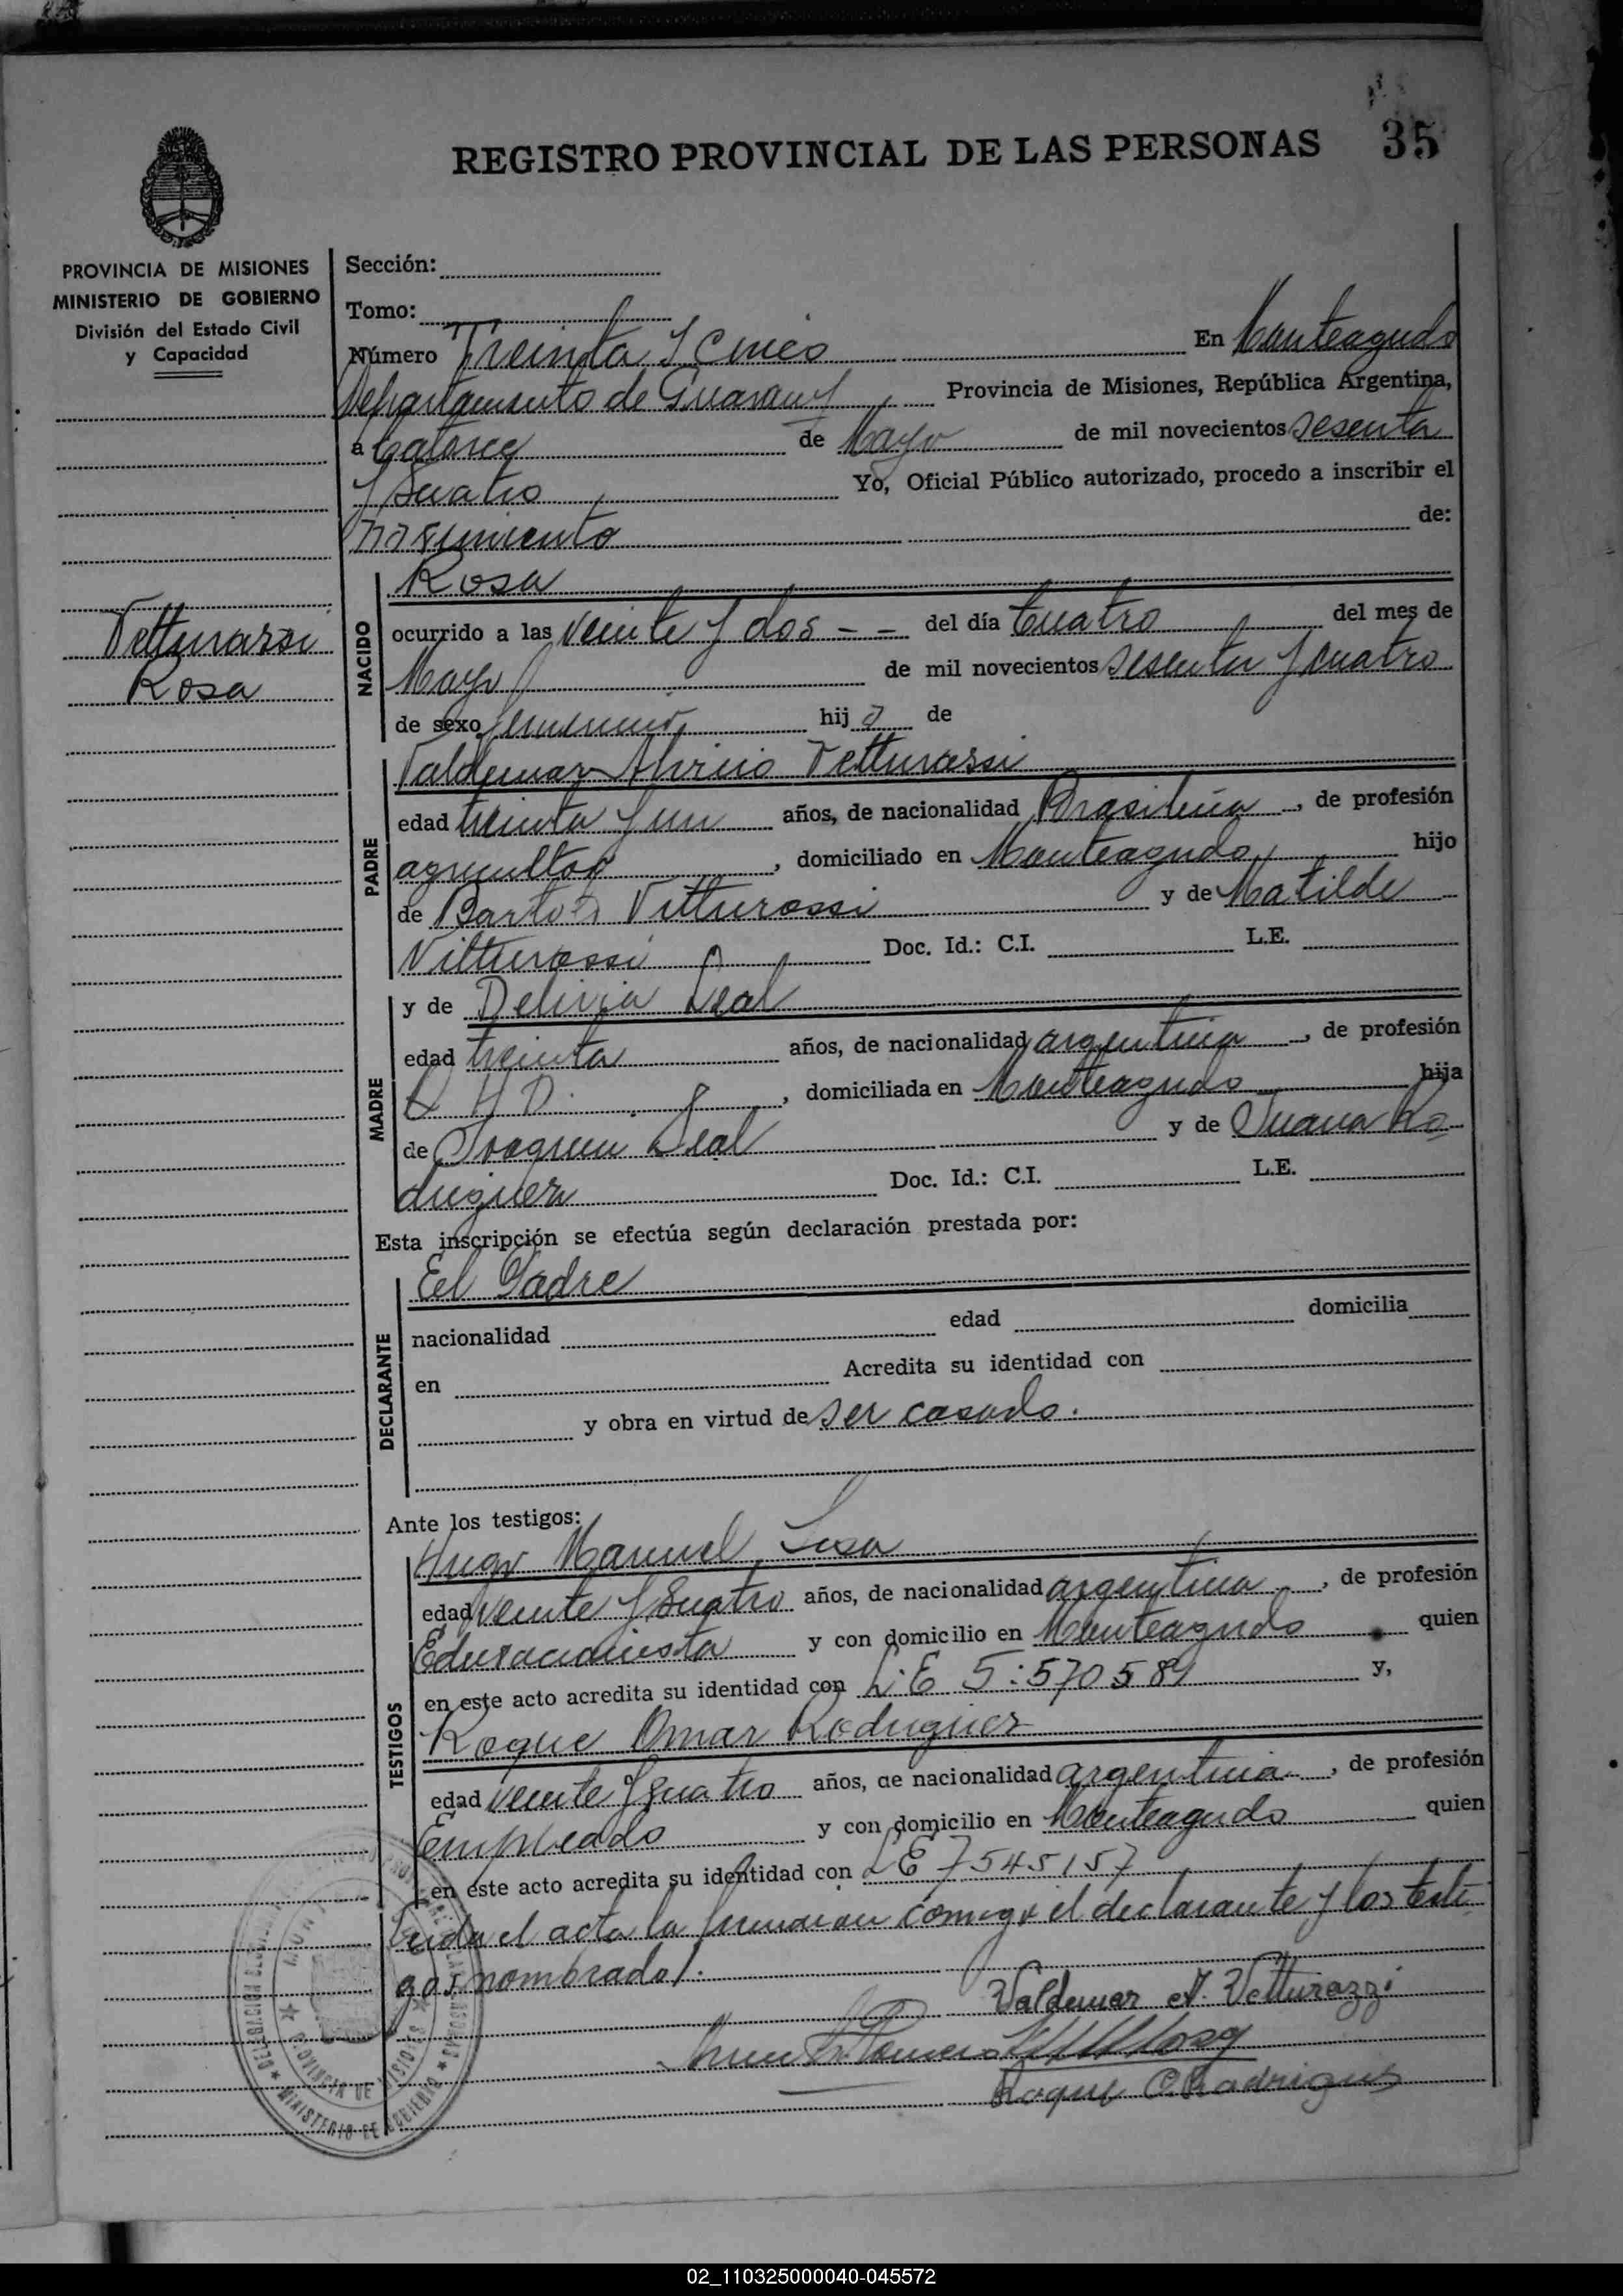 REGISTRO PROVINCIAL DE LAS PERSONAS 35
PROVINCIA DE MISIONES
MINISTERIO DE GOBIERNO
División del Estado Civil
y Capacidad
Vetturassi
Rosa
Sección:
Tomo:
Número Treinta y Cinco En Monteagudo
Departamento de Guarany Provincia de Misiones, República Argentina,
a Catorce de Mayo de mil novecientos sesenta
y Cuatro Yo, Oficial Público autorizado, procedo a inscribir el
nasimiento de:
NACIDO
Rosa
ocurrido a las veinte y dos - - del día Cuatro del mes de
Mayo de mil novecientos sesenta y cuatro
de sexo femenino, hij a de
PADRE
Valdemar Vetturassi
edad treinta y un años, de nacionalidad Brasileña, de profesión
agricultor, domiciliado en Monteagudo, hijo
de Vitturossi y de Matilde
Vitturossi Doc. Id.: C.I. L.E.
MADRE
y de Delivia Leal
edad treinta años, de nacionalidad argentina, de profesión
Q H D. , domiciliada en Monteagudo hija
de Joaquin Leal y de Juana Ro
driguez Doc. Id.: C.I. L.E.
Esta inscripción se efectúa según declaración prestada por:
DECLARANTE
Eel Padre
nacionalidad edad domicilia
en Acredita su identidad con
y obra en virtud de ser casado.
Ante los testigos:
TESTIGOS
Hugo Manuel Sosa
edad veinte y Cuatro años, de nacionalidad argentina, de profesión
Educacionista y con domicilio en Monteagudo quien
en este acto acredita su identidad con L.E 5:570589 y,
Roque Omar Rodriguez
edad veinte y cuatro años, de nacionalidad argentina, de profesión
Empleado y con domicilio en Monteagudo quien
en este acto acredita su identidad con L E 7545157
Leida el acta la firmaran comigo el declarante y los testi
gos nombrados.
Valdemar A. Vetturazzi
Roque O. Rodriguez
MINISTERIO DE GOBIERNO
PROVINCIA DE MISIONES
02_110325000040-045572